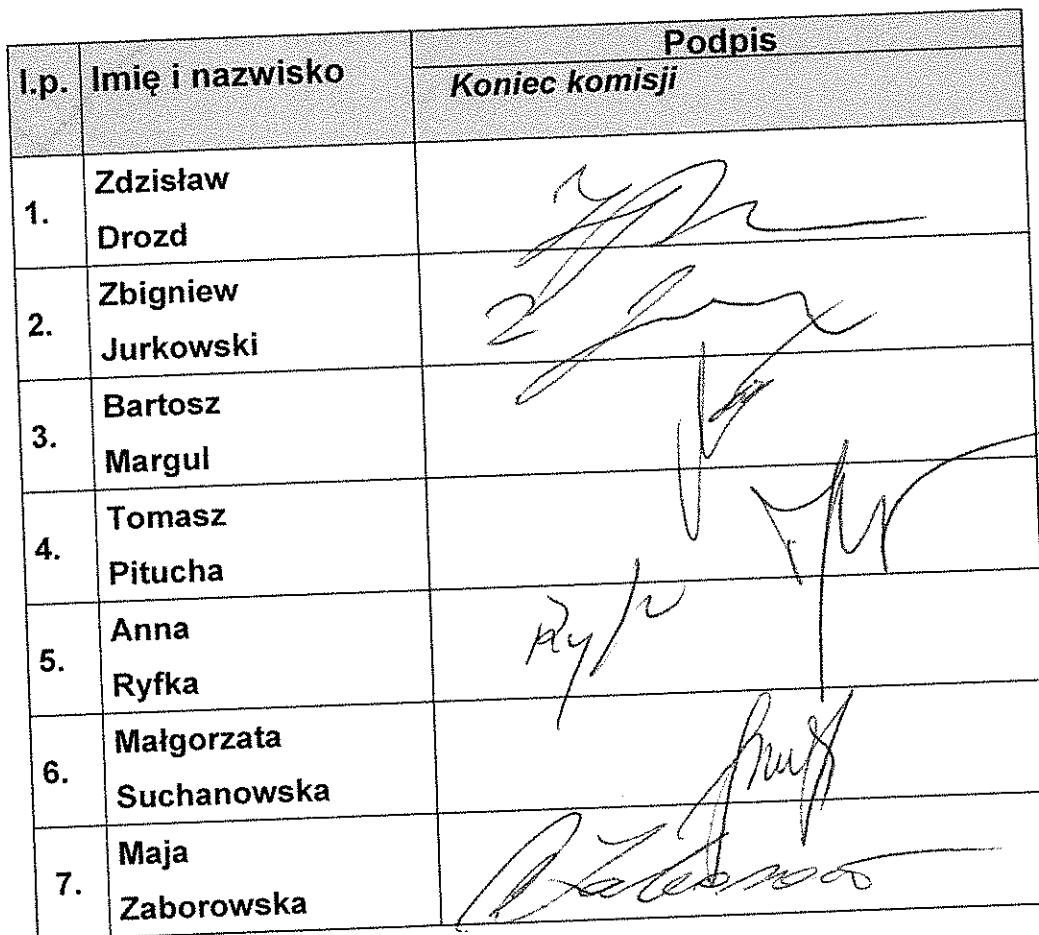 Podpis
l.p. Imię i nazwisko Koniec komisji
1. Zdzisław
Drozd
2. Zbigniew
Jurkowski
3. Bartosz
Margul
4. Tomasz
Pitucha
5. Anna
Ryfka
6. Małgorzata
Suchanowska
7. Maja
Zaborowska